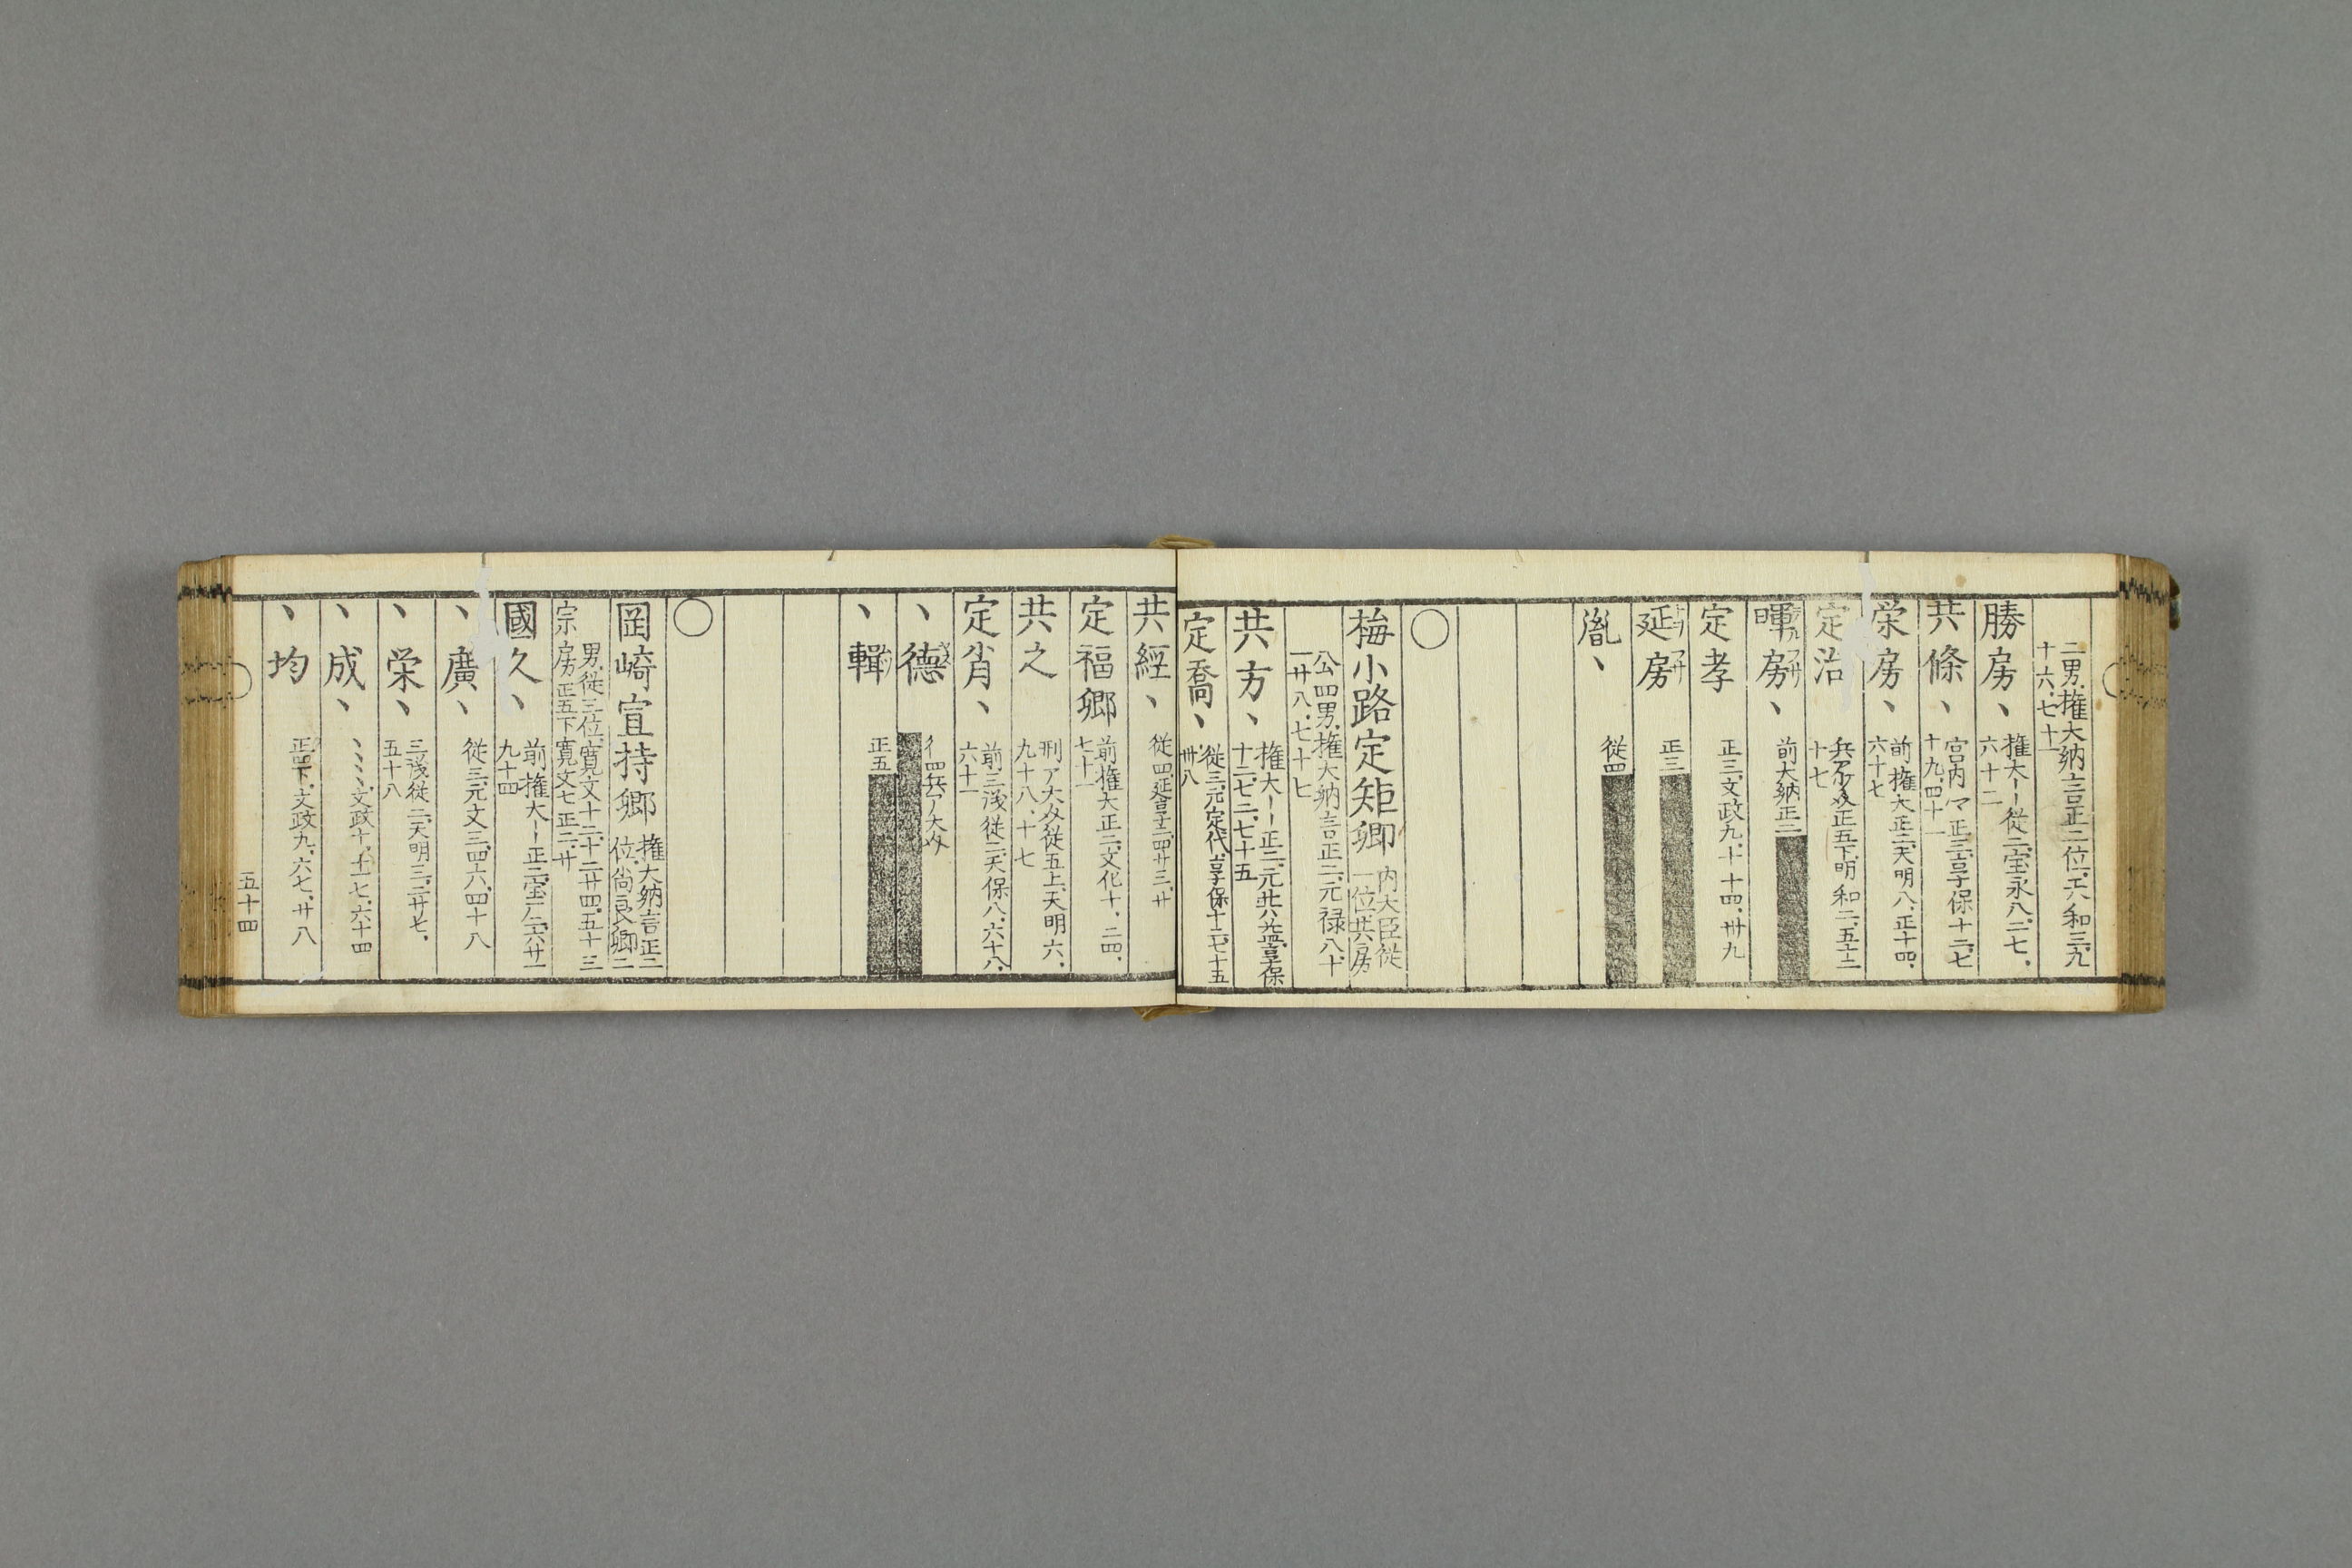 二男、権大納言正二位、天和三、九
十六、七十一
勝房、権大ーー従二、宝永八、二七、
六十二
共條、宮内マ正三、享保十二、七
十九、四十一
栄房、前権大正二、天明八、正十四、
六十七
定治 正五下、明和二、五十二
十七
暉房、前大納正二
定孝 正三、文政九、十十四、卅九
延房 正三
胤、従四
〇
梅小路定矩卿 内大臣従
一位共房
公四男、権大納言正二、元禄八、十
一廿八、七十七
共方、権大ーー正二、享保
十二、七二、七十五
定喬、従三、元定代、享保十二、七十五
卅八
共經、従四、延享二、四廿三、廿
定福卿 前権大正二、文化十、二四、
七十一
共之 刑ア大夊従五上、天明六、
九十八、十七
定肖、前三浅従二、天保八、六十八、
六十一
丶徳 四兵ア大夊
丶輯 正五
〇
岡崎宣持卿 権大納言正二
位、尚良卿二
男、従三位、寛文十二、十二廿四、五十三
宗房 正五下寛文七正二、廿
國久、前権大ー正二、宝六廿一
九十四
丶廣、従三、元文三、四十六、四十八
丶栄、三浅従二、天明三、二廿七、
五十八
丶成、丶丶丶、文政十、十一七、六十四
丶均 正四下、文政九、六七、廿八
五十四